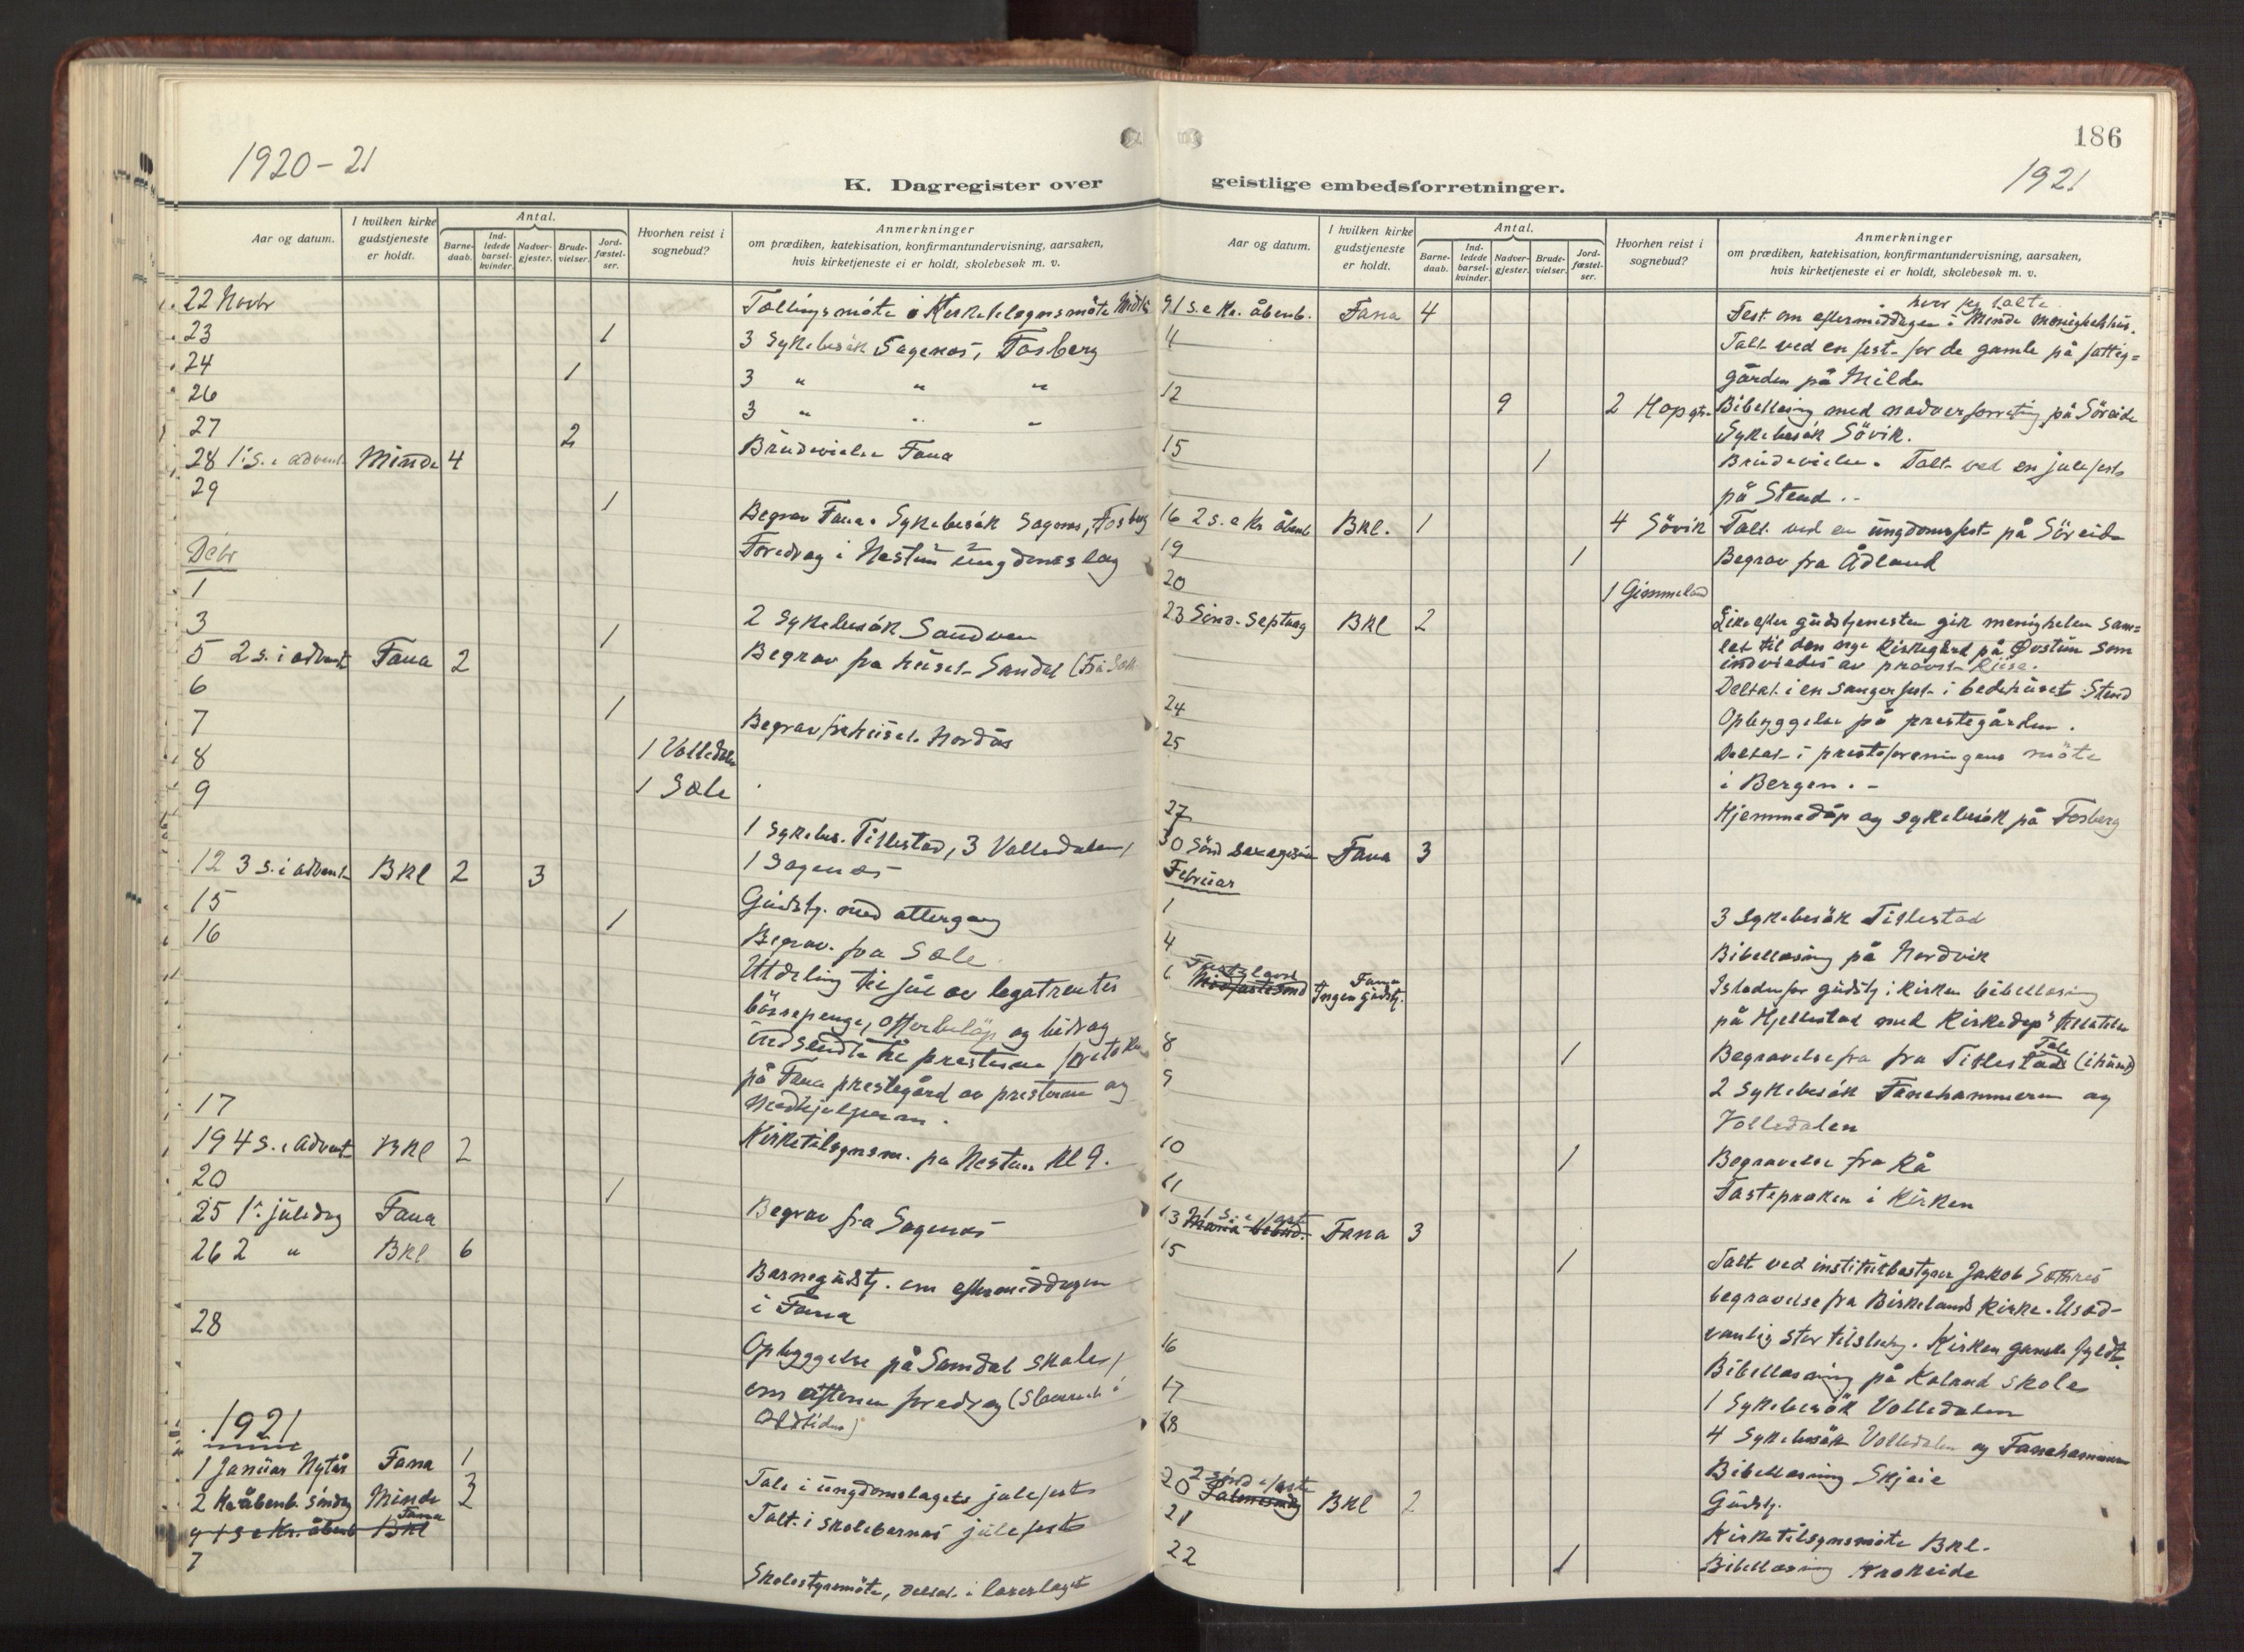 1920-21
186
1921
K. Dagregister over geistlige embedsforretninger.
Aar og datum.
I hvilken kirke gudstjeneste er holdt.
Antal.
Barne-daab.
Ind-ledede barsel-kvinder.
Nadver-gjester.
Brude-vielser.
Jord-fæstel-ser.
Hvorhen reist i sognebud?
Anmerkninger
om prædiken, katekisation, konfirmantundervisning, aarsaken,
hvis kirketjeneste ei er holdt, skolebesøk m. v.
22 Novbr
23 1 3 Sykebesøk Sagenæs, Fosberg
24 1 3 " " "
26 3 " " "
27 2 Brudevielse Fana
28 1. s. i advent Minde 4
29 1 Begrav Fana. Sykebesøk Sagenæs, Fosberg
Foredrag i Nestun ungdomslag
Debr
1
3 1 2 Sykebesøk Sandven
5 2 s. i advent Fana 2 Begrav fra huset Sandal
6
7 1 Begrav fra huset Nordås
8 1 Volledalen
9 1 Sæle
1 Sykebes. Titlestad, 3 Volledalen,
1 Sagenæs
12 3 s. i advent BKl 2 3 Gudstj. med altergang
15 1 Begrav. fra Sæle
16 Utdeling til jul av legatrenter
bøssepenge, offerbeløp og bidrag
indsendte til presterne
på Fana prestegård av presterne og
17 Kirketilsynsm. på Nestun Kl 9.
19 4 s. i advent BKl 2
20 1 Begrav fra Sagenæs
25 1. juledag Fana
26 2 " BKl 6 Barnegudstj. om eftermiddagen
i Fana
28 Opbyggelse på Samdal skole,
om aftenen foredrag
1921
1 Januar Nytår Fana 1
2 Kr åbenb. søndag Minde 3 Tale i ungdomslagets julefest
9 1 s e Kr. åbenb BKl Fana Talt i skolebarnas julefest
7 Skolestyremøte, deltat i lærerlaget
Aar og datum.
I hvilken kirke gudstjeneste er holdt.
Antal.
Barne-daab.
Ind-ledede barsel-kvinder.
Nadver-gjester.
Brude-vielser.
Jord-fæstel-ser.
Hvorhen reist i sognebud?
Anmerkninger
om prædiken, katekisation, konfirmantundervisning, aarsaken,
hvis kirketjeneste ei er holdt, skolebesøk m. v.
hvor jeg talte
9 1 s. e Kr. åbenb. Fana 4 Fest om eftermiddagen i Minde menighetshus.
11 Talt ved en fest for de gamle på fattig=
gården på Milde
12 9 2 Hop Bibellæsing med nadverforretning på Søreide
Sykebesøk Søvik.
15 1 Brudevielse. Talt ved en julefest
på Stend.
16 2 s. e Kr åbenb BKl. 1 4 Søvik Talt ved en ungdomsfest på Søreide
19 1 Begrav fra Ådland
20 1 Gimmeland
23 Sønd. Septuag BKl 2 Like efter gudstjenesten gik menigheten sam=
let til den nye kirkegård på Øvstun som
indviedes av provst
Deltat i en sangerfest i bedehuset Stend
24 Opbyggelse på prestegården.
25 Deltat i presteforeningens møte
i Bergen.
27 Hjemmedåp og sykebesøk på Fosberg
30 Sønd Sexagesima Fana 3
Februar
1 3 Sykebesøk Titlestad
4 Bibellæsning på Nordvik
6 Fastelavn Midfastesønd Fana Ingen gudstj. Istedenfor gudstj i kirken bibellæsning
på Hjellestad med Kirkedep's tillatelse
8 1 Begravelse fra fra Titlestad Tale (i huset)
9 2 Sykebesøk Fanehammeren og
Volledalen
10 1 Begravelse fra Rå
11 Fastepræken i Kirken
13 1 s. i fast Maria bebud. Fana 3
15 1 Talt ved institutbestyrer Jakob Sæthres
begravelse fra Birkelands kirke. Usæd-
vanlig stor tilslutn. Kirken ganske fyldt
16 Bibellæsning på Kaland skole
17 1 Sykebesøk Volledalen
18 4 Sykebesøk Volledalen og Fanehammeren
Bibellæsning Skjeie
20 2 sønd i faste Palmesøndag BKl 2 Gudstj.
21 Kirketilsynsmøte BKl.
22 1 Bibellæsning Krokeide